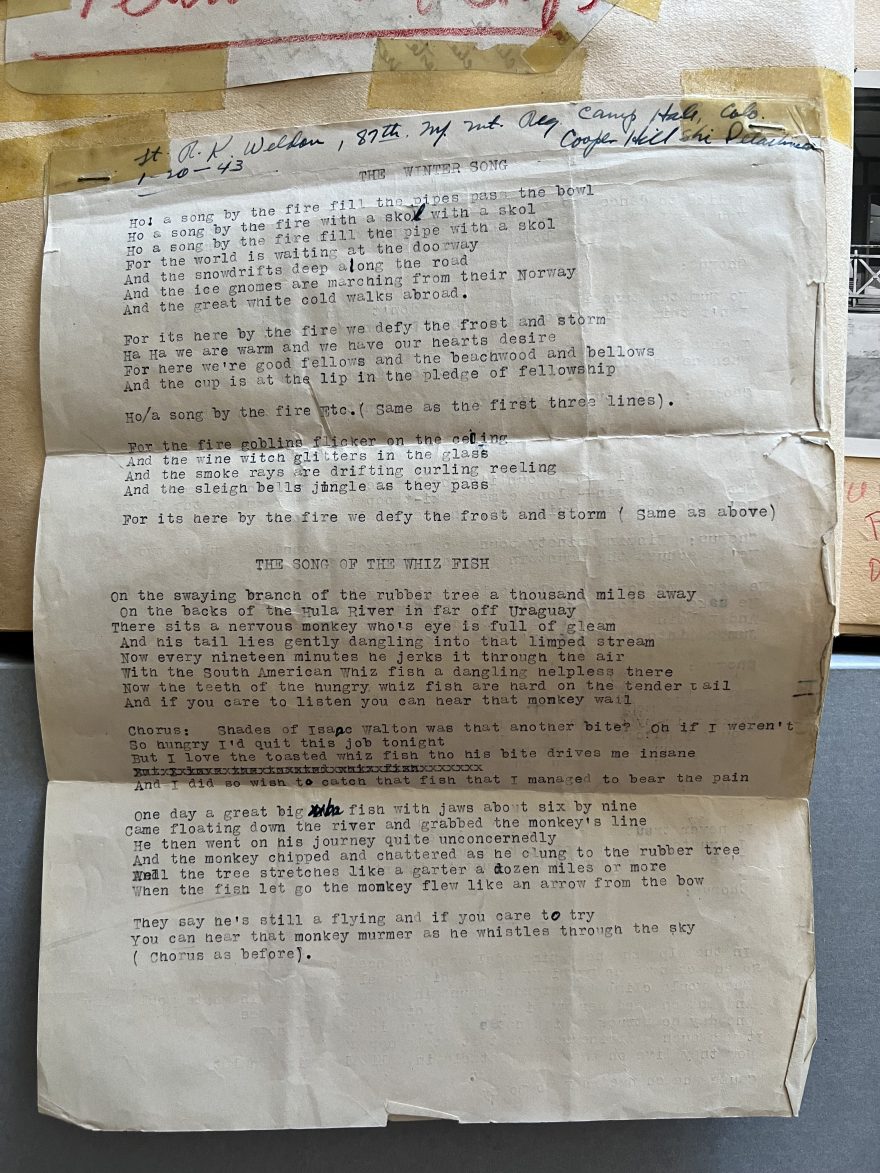 Lt. R. K. Weldon, 87th. Mt. Reg. Camp Hale, Colo.
1-20-43 Cooper Hill Ski Detachment
THE WINTER SONG
Ho! a song by the fire fill the pipes pass the bowl
Ho a song by the fire with a skol with a skol
Ho a song by the fire fill the pipe with a skol
For the world is waiting at the doorway
And the snowdrifts deep along the road
And the ice gnomes are marching from their Norway
And the great white cold walks abroad.
For its here by the fire we defy the frost and storm
Ha Ha we are warm and we have our hearts desire
For here we're good fellows and the beachwood and bellows
And the cup is at the lip in the pledge of fellowship
Ho/a song by the fire Etc.( Same as the first three lines).
For the fire goblins flicker on the ceiling
And the wine witch glitters in the glass
And the smoke rays are drifting curling reeling
And the sleigh bells jingle as they pass
For its here by the fire we defy the frost and storm ( Same as above)
THE SONG OF THE WHIZ FISH
On the swaying branch of the rubber tree a thousand miles away
On the backs of the Hula River in far off Uraguay
There sits a nervous monkey who's eye is full of gleam
And his tail lies gently dangling into that limped stream
Now every nineteen minutes he jerks it through the air
With the South American Whiz fish a dangling helpless there
Now the teeth of the hungry whiz fish are hard on the tender tail
And if you care to listen you can hear that monkey wail
Chorus: Shades of Isaac Walton was that another bite? Oh if I weren't
So hungry I'd quit this job tonight
But I love the toasted whiz fish tho his bite drives me insane
And I did so wish to catch that fish that I managed to bear the pain
One day a great big fish with jaws about six by nine
Came floating down the river and grabbed the monkey's line
He then went on his journey quite unconcernedly
And the monkey chipped and chattered as he clung to the rubber tree
Well the tree stretches like a garter a dozen miles or more
When the fish let go the monkey flew like an arrow from the bow
They say he's still a flying and if you care to try
You can hear that monkey murmer as he whistles through the sky
( Chorus as before).